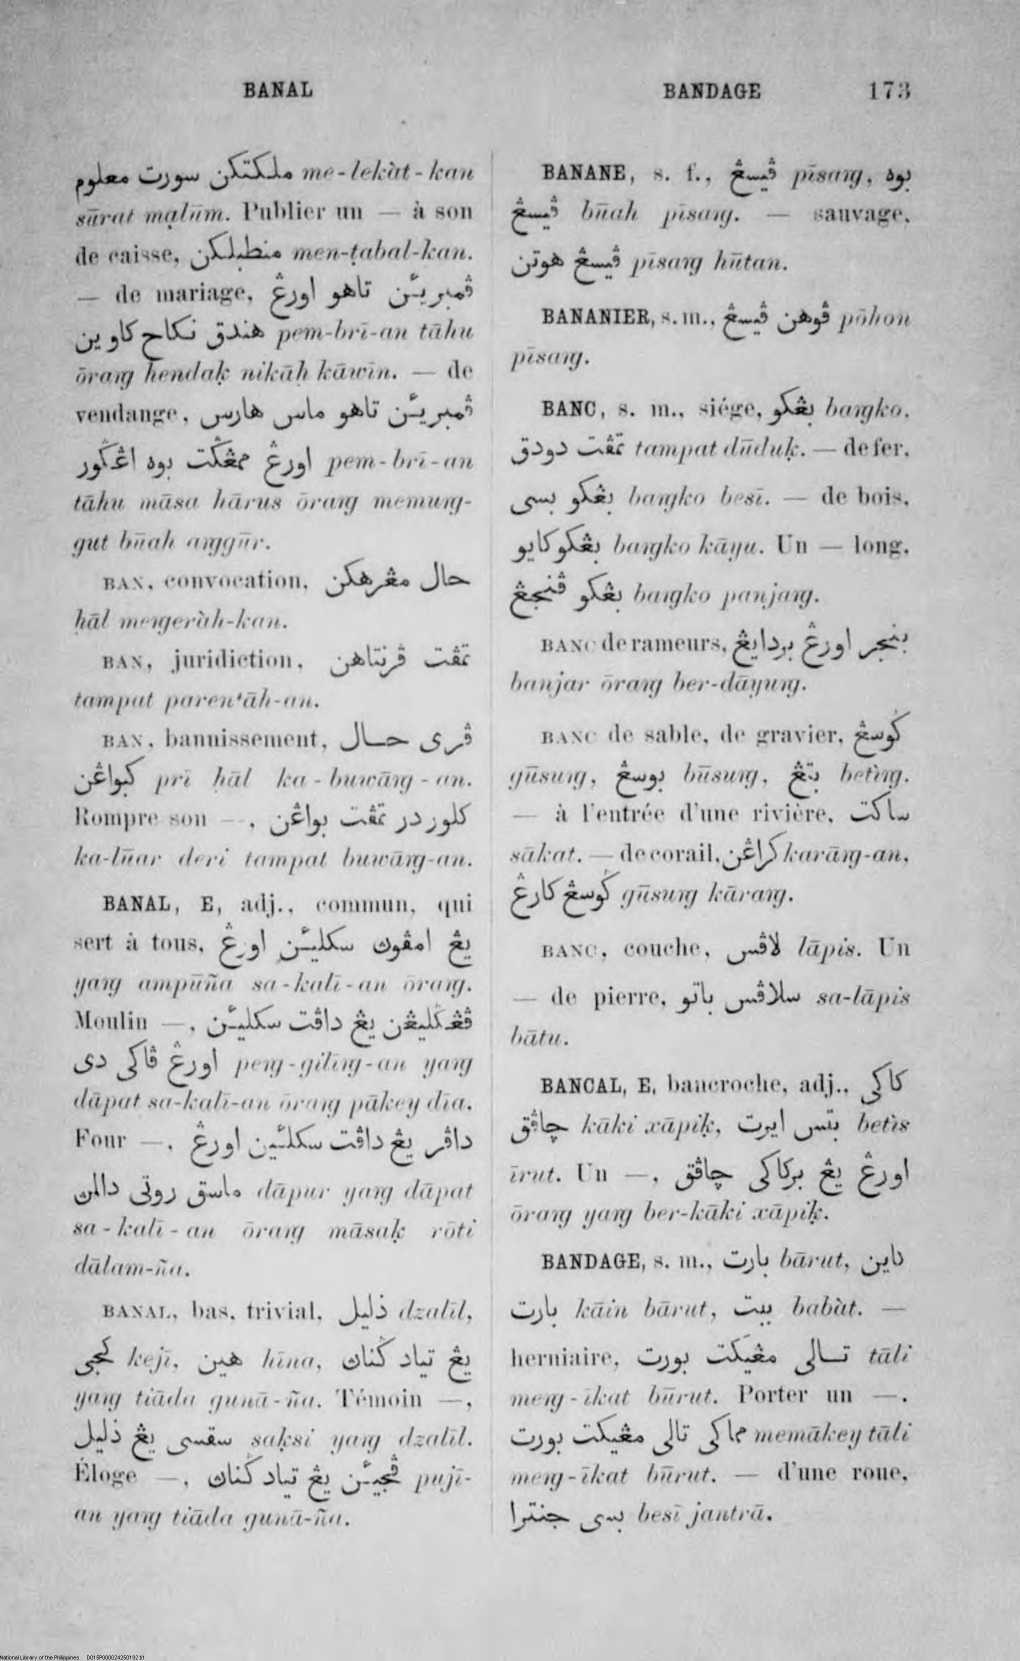 BANAL
BANDAGE 173
ملكتكن سورت معلوم me-lekàt-kan
sūrat maʿlūm. Publier un — à son
de caisse, منطبلكن men-ṭabal-kan.
— de mariage, ڤمبريئن تاهو اورڠ
هندق نكاح كاوين pem-brī-an tāhu
ōraṃg hendaḳ nikāḥ kāwīn. — de
vendange, ڤمبريئن تاهو ماس هارس
اورڠ ممڠݢت بوه اڠݢور pem-brī-an
tāhu māsa hārus ōrang memung-
gut būah anggūr.
BAN, convocation, حال مڠرهكن
ḥāl mengeràh-kan.
BAN, juridiction, تمڤت ڤرنتاهن
tampat parentāh-an.
BAN, bannissement, ڤري حال
كبواڠن prī ḥāl ka-buwāng-an.
Rompre son —, كلور در تمڤت بواڠن
ka-lūar deri tampat buwāng-an.
BANAL, E, adj., commun, qui
sert à tous, يڠ امڤوڽ سكليئن اورڠ
yang ampūña sa-kalī-an ōrang.
Moulin —, ڤڠݢليڠن يڠ داڤت سكليئن
اورڠ ڤاكي دي peng-gilīng-an yang
dāpat sa-kalī-an ōrang pākey dīa.
Four —, داڤر يڠ داڤت سكلئين اورڠ
ماسق روتي دالمڽ dāpur yang dāpat
sa-kalī-an ōrang māsaḳ rōti
dālam-ña.
BANAL, bas, trivial, ذليل dzalīl,
كجي kejī, هين hīna, يڠ تياد ݢناڽ
yang tiāda gunā-ña. Témoin —,
سقسي يڠ ذليل saḳsi yang dzalīl.
Éloge —, ڤجيئن يڠ تياد ݢناڽ pujī-
an yang tiāda gunā-ña.
BANANE, s. f., ڤيسڠ pīsang, بوه
ڤيسڠ būah pīsang. — sauvage,
ڤيسڠ هوتن pīsang hūtan.
BANANIER, s. m., ڤوهن ڤيسڠ pōhon
pīsang.
BANC, s. m., siége, بڠكو bangko,
تمڤت دودق tampat dūduḳ. — de fer,
بڠكو بسي bangko besī. — de bois,
بڠكو كايو bangko kāyu. Un — long,
بڠكو ڤنجڠ bangko panjang.
BANC de rameurs, بنجر اورڠ بردايڠ
banjar ōrang ber-dāyung.
BANC de sable, de gravier, ݢوسڠ
gūsung, بوسڠ būsung, بتڠ beting.
— à l'entrée d'une rivière, ساكت
sākat. — de corail, كراڠن karāng-an,
ݢوسڠ كارڠ gūsung kārang.
BANC, couche, لاڤس lāpis. Un
— de pierre, سلاڤس باتو sa-lāpis
bātu.
BANCAL, E, bancroche, adj., كاكي
چاڤق kāki xāpiḳ, بتس ايرت betìs
īrut. Un —, اورڠ يڠ بركاكي چاڤق
ōrang yang ber-kāki xāpiḳ.
BANDAGE, s. m., بارت bārut, كاين
بارت kāin bārut, ببت babàt. —
herniaire, تالي مڠيكت بورت tāli
meng-īkat būrut. Porter un —,
مماكي تالي مڠيكت بورت memākey tāli
meng-īkat būrut. — d'une roue,
بسي جنترا besī jantrā.
National Library of the Philippines